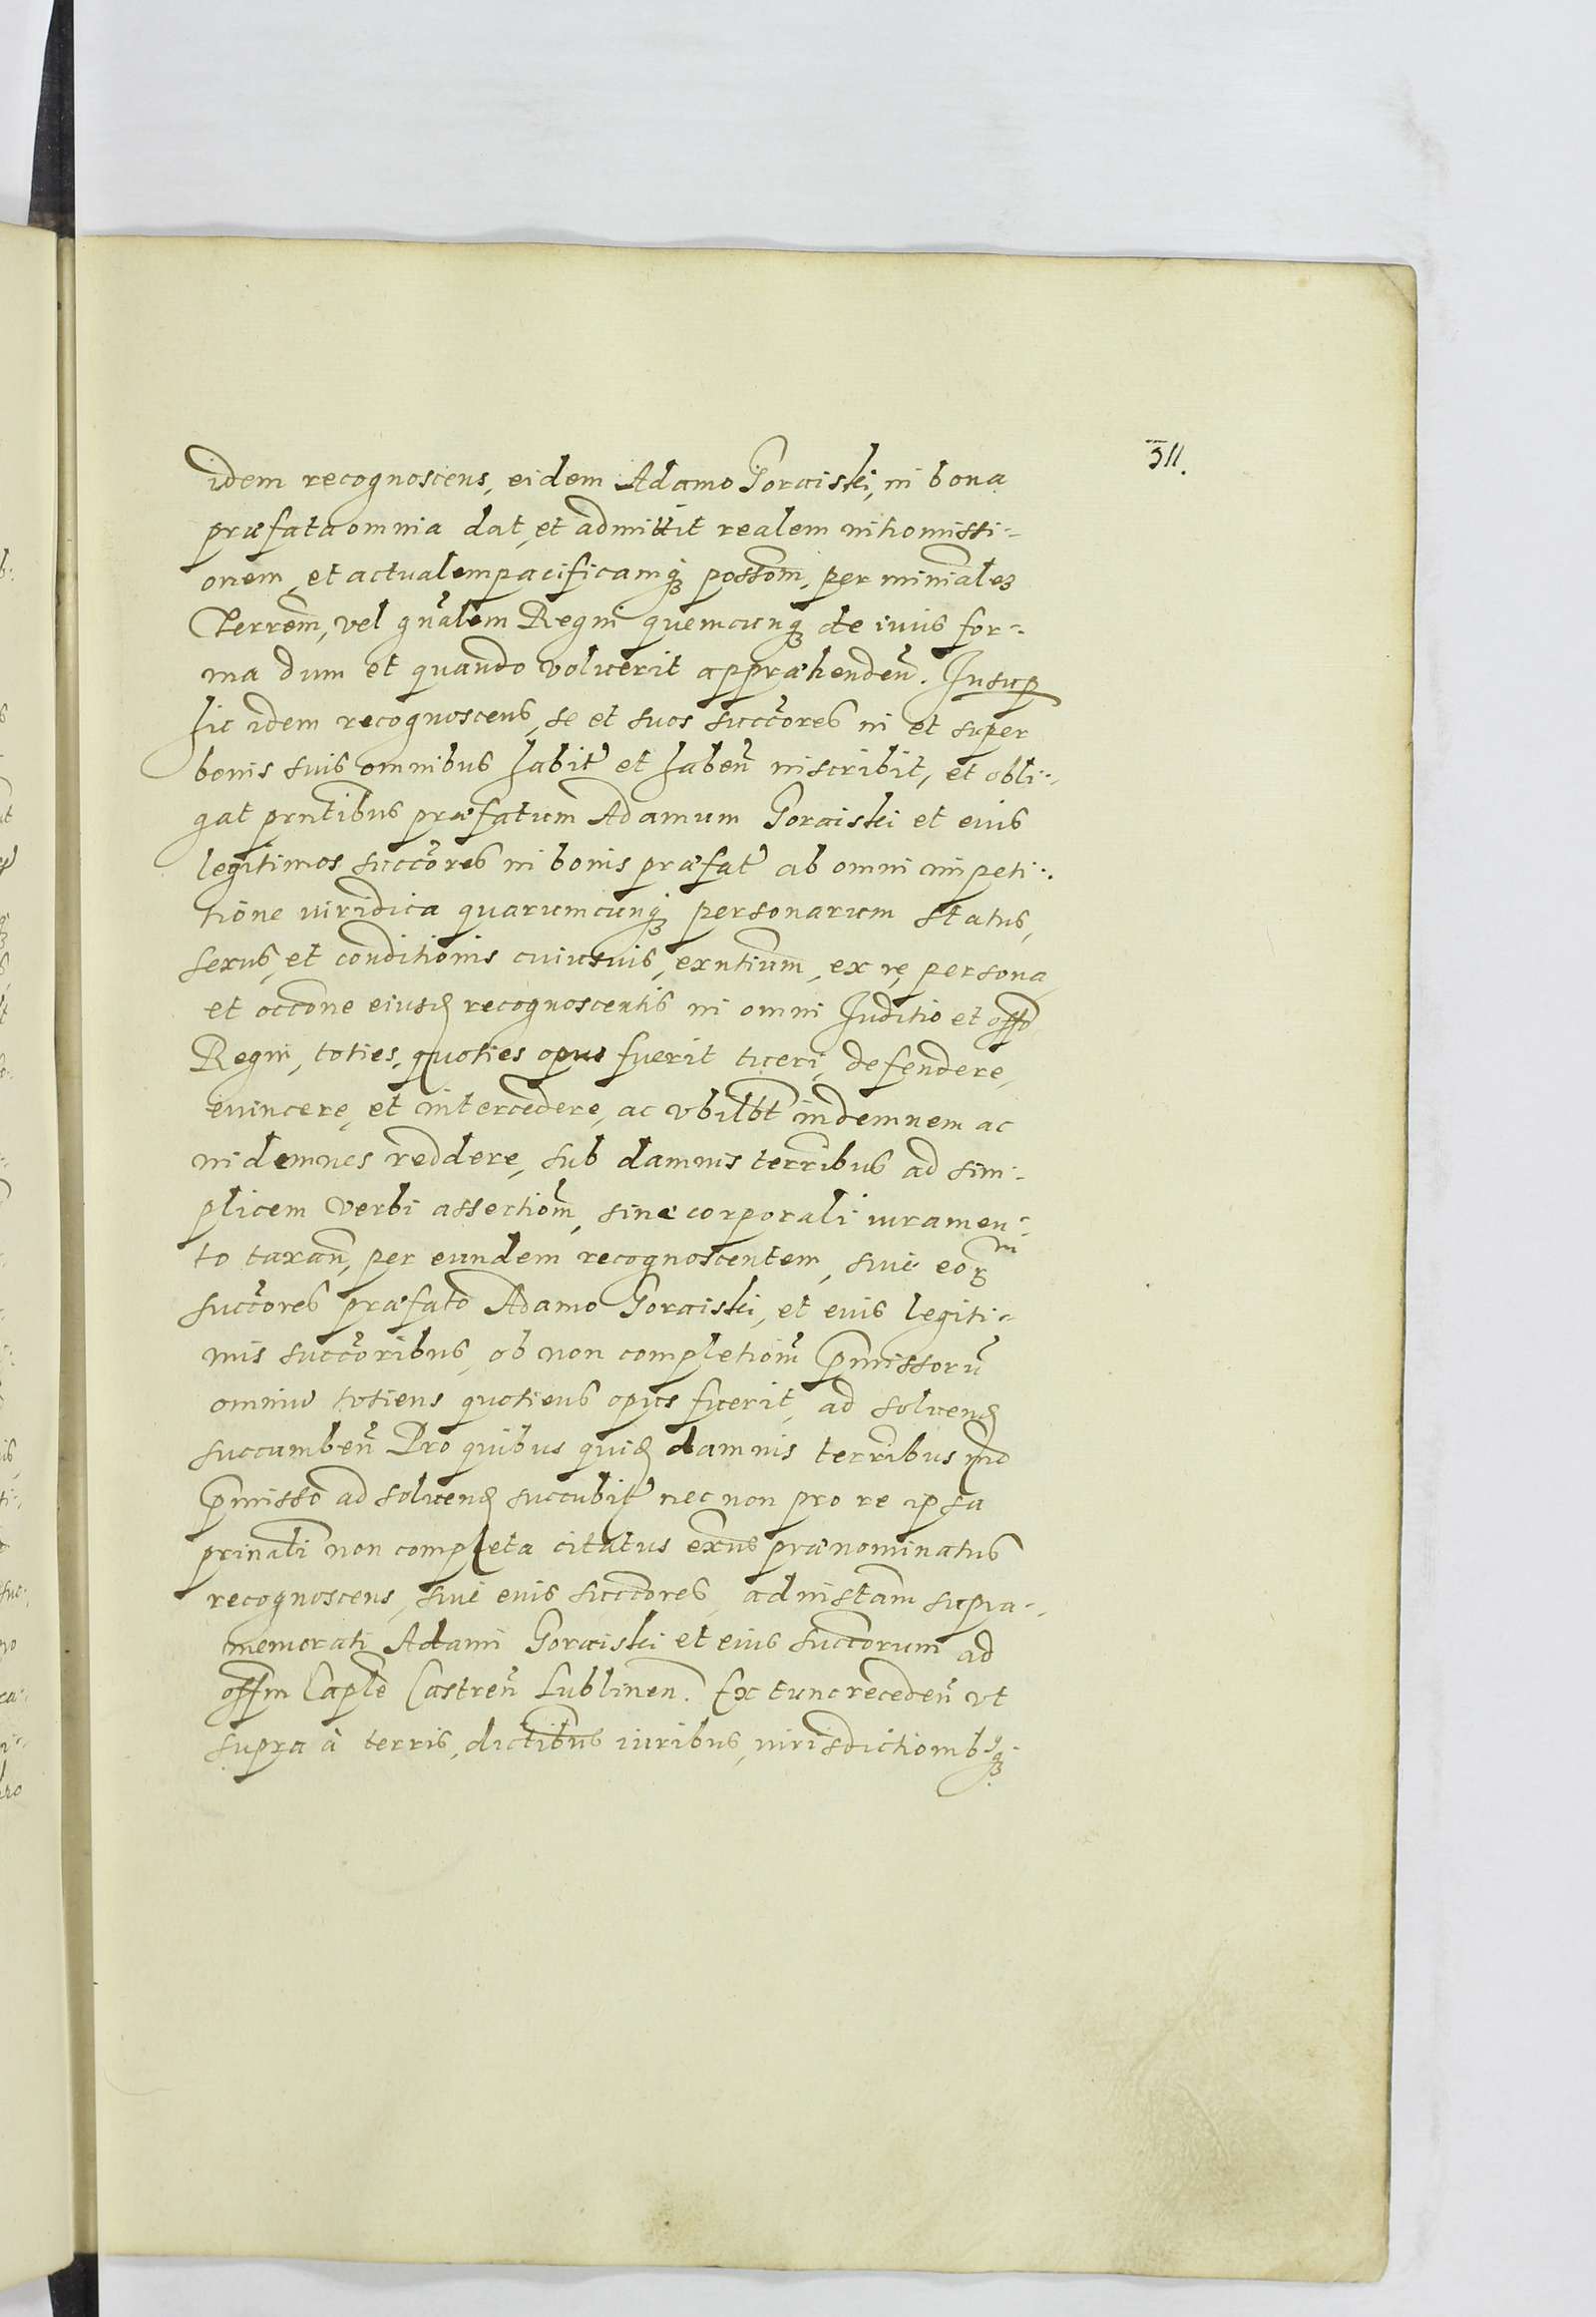 311.
idem recognoscens, eidem Adamo Goraiski, in bona
præfata omnia dat, et admittit realem intromissi-
onem, et actualem pacificamq; possom̃, per minia͠lez
Terrem̃, vel gña͠lem Regni quemcunq; de iuris for-
ma dum et quando voluerit appræhendeñ. Insup
hic idem recognoscens, se et suos succc̃ores in et super
bonis suis omnibus habit̃ et habeñ inscribit, et obli-
gat prñtibus præfatum Adamum Goraiski et eius
legitimos succc̃ores in bonis præfat̃ ab omni impeti-
tiõne iuridica quarumcunq; personarum status,
sexus, et conditionis cuiusuis, exñtium, ex re, persona
et occõne eiusd recognoscentis in omni Juditio et offõ
Regni, toties, quoties opus fuerit tueri, defendere,
euincere, et intercedere, ac vbilbt̃ indemnem ac
indemnes reddere, sub damnis terr̃ibus ad sim-
plicem verbi assertiom̃, sine corporali iuramen-
to taxañ, per eundem recognoscentem, siue eor m
succc̃ores præfato Adamo Goraiski, et eius legiti-
mis succc̃oribus, ob non completiom̃ p̃missorũ
omniũ totiens quotiens opus fuerit, ad soluend
succumbeñ Pro quibus quid damnis terr̃ibus mõ
p̃misso ad soluend succubit̃ nec non pro re ipsa
prina͠li non completa citatus exñs prænominatus
recognoscens, siue eius succc̃ores, ad instam̃ supra-
memorati Adami Goraiski et eius succc̃orum ad
offm̃ Caple͠ Castreñ Lublineñ. Ex tunc recedeñ vt
supra à terris, dictibus iuribus, iurisdictionibq;